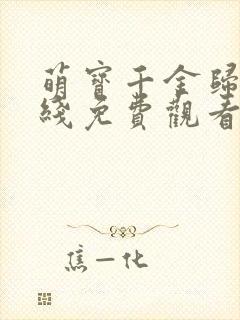 萌寶千金歸
綫免費觀看
焦一化